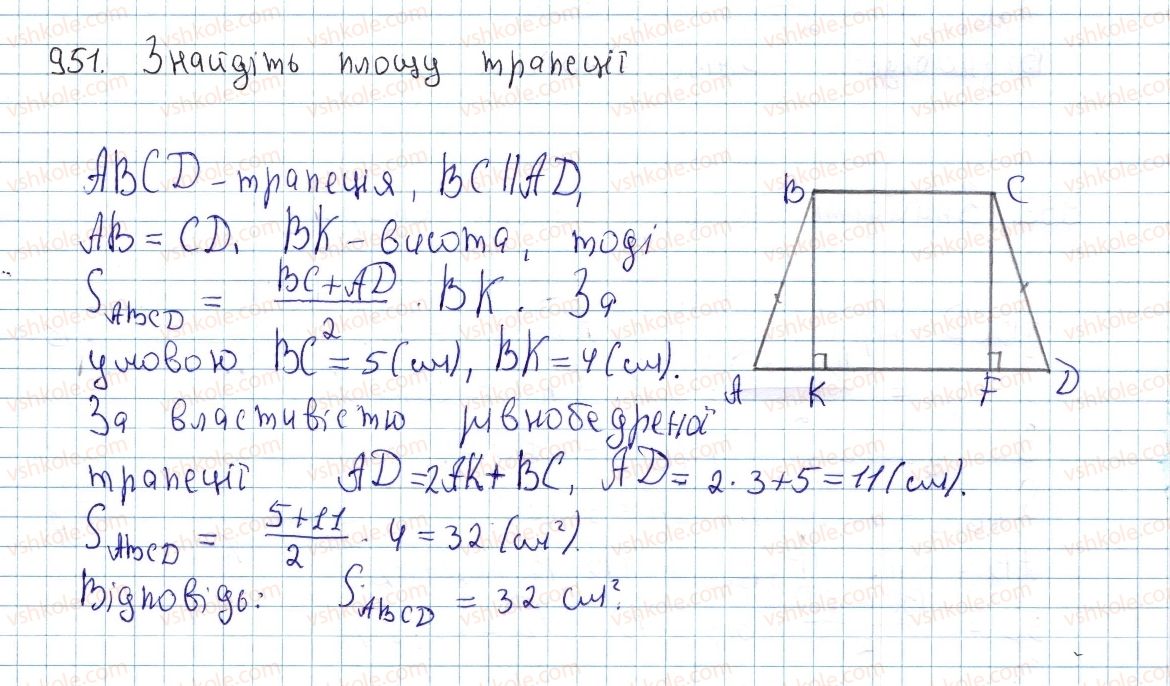 951. Знайдіть площу трапеції
ABCD – трапеція, BC || AD,
AB = CD. BK – висота, тоді
S_ABCD = (BC + AD)/2 · BK. За
умовою BC = 5 (см), BK = 4 (см).
За властивістю рівнобедреної
трапеції AD = 2AK + BC, AD = 2 · 3 + 5 = 11 (см).
S_ABCD = (5 + 11)/2 · 4 = 32 (см²).
Відповідь: S_ABCD = 32 см².
B C
A K F D
vshkole.com